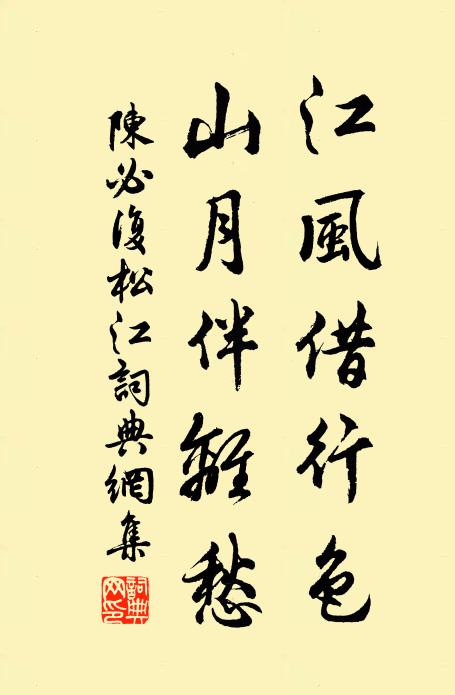 江風借行色
山月伴離愁
陳必復松江詞典網集
詞典網印